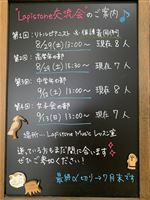 "Lapistone交流会"のご案内♪
第1回:リトルピアニスト & 保護者同伴可
8/29(土) 13:00〜 現在8人
第2回:高学年の部
8/29(土) 15:30〜 現在7人
第3回:中学年の部
9/5(土) 13:00〜 現在8人
第4回:女子会の部
9/13(日) 13:00〜 現在7人
場所…Lapistone Musicレッスン室
迷っている方もまだ間に合います
ぜひご参加ください!
最終〆切り→7月末です